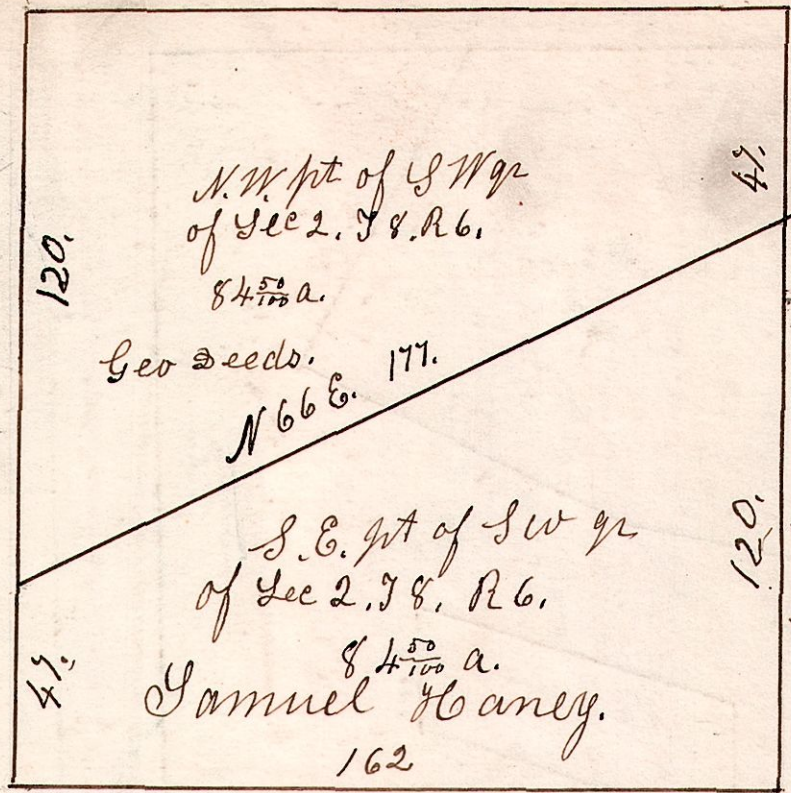 N.W. pt of S W qr
of Sec 2. T 8. R 6.
84 50/100 a.
Geo Deeds.
N 66 E. 177.
120.
47.
S. E. pt of S W qr
of Sec 2. T 8. R 6.
84 50/100 a.
Samuel Haney.
162
47.
120.